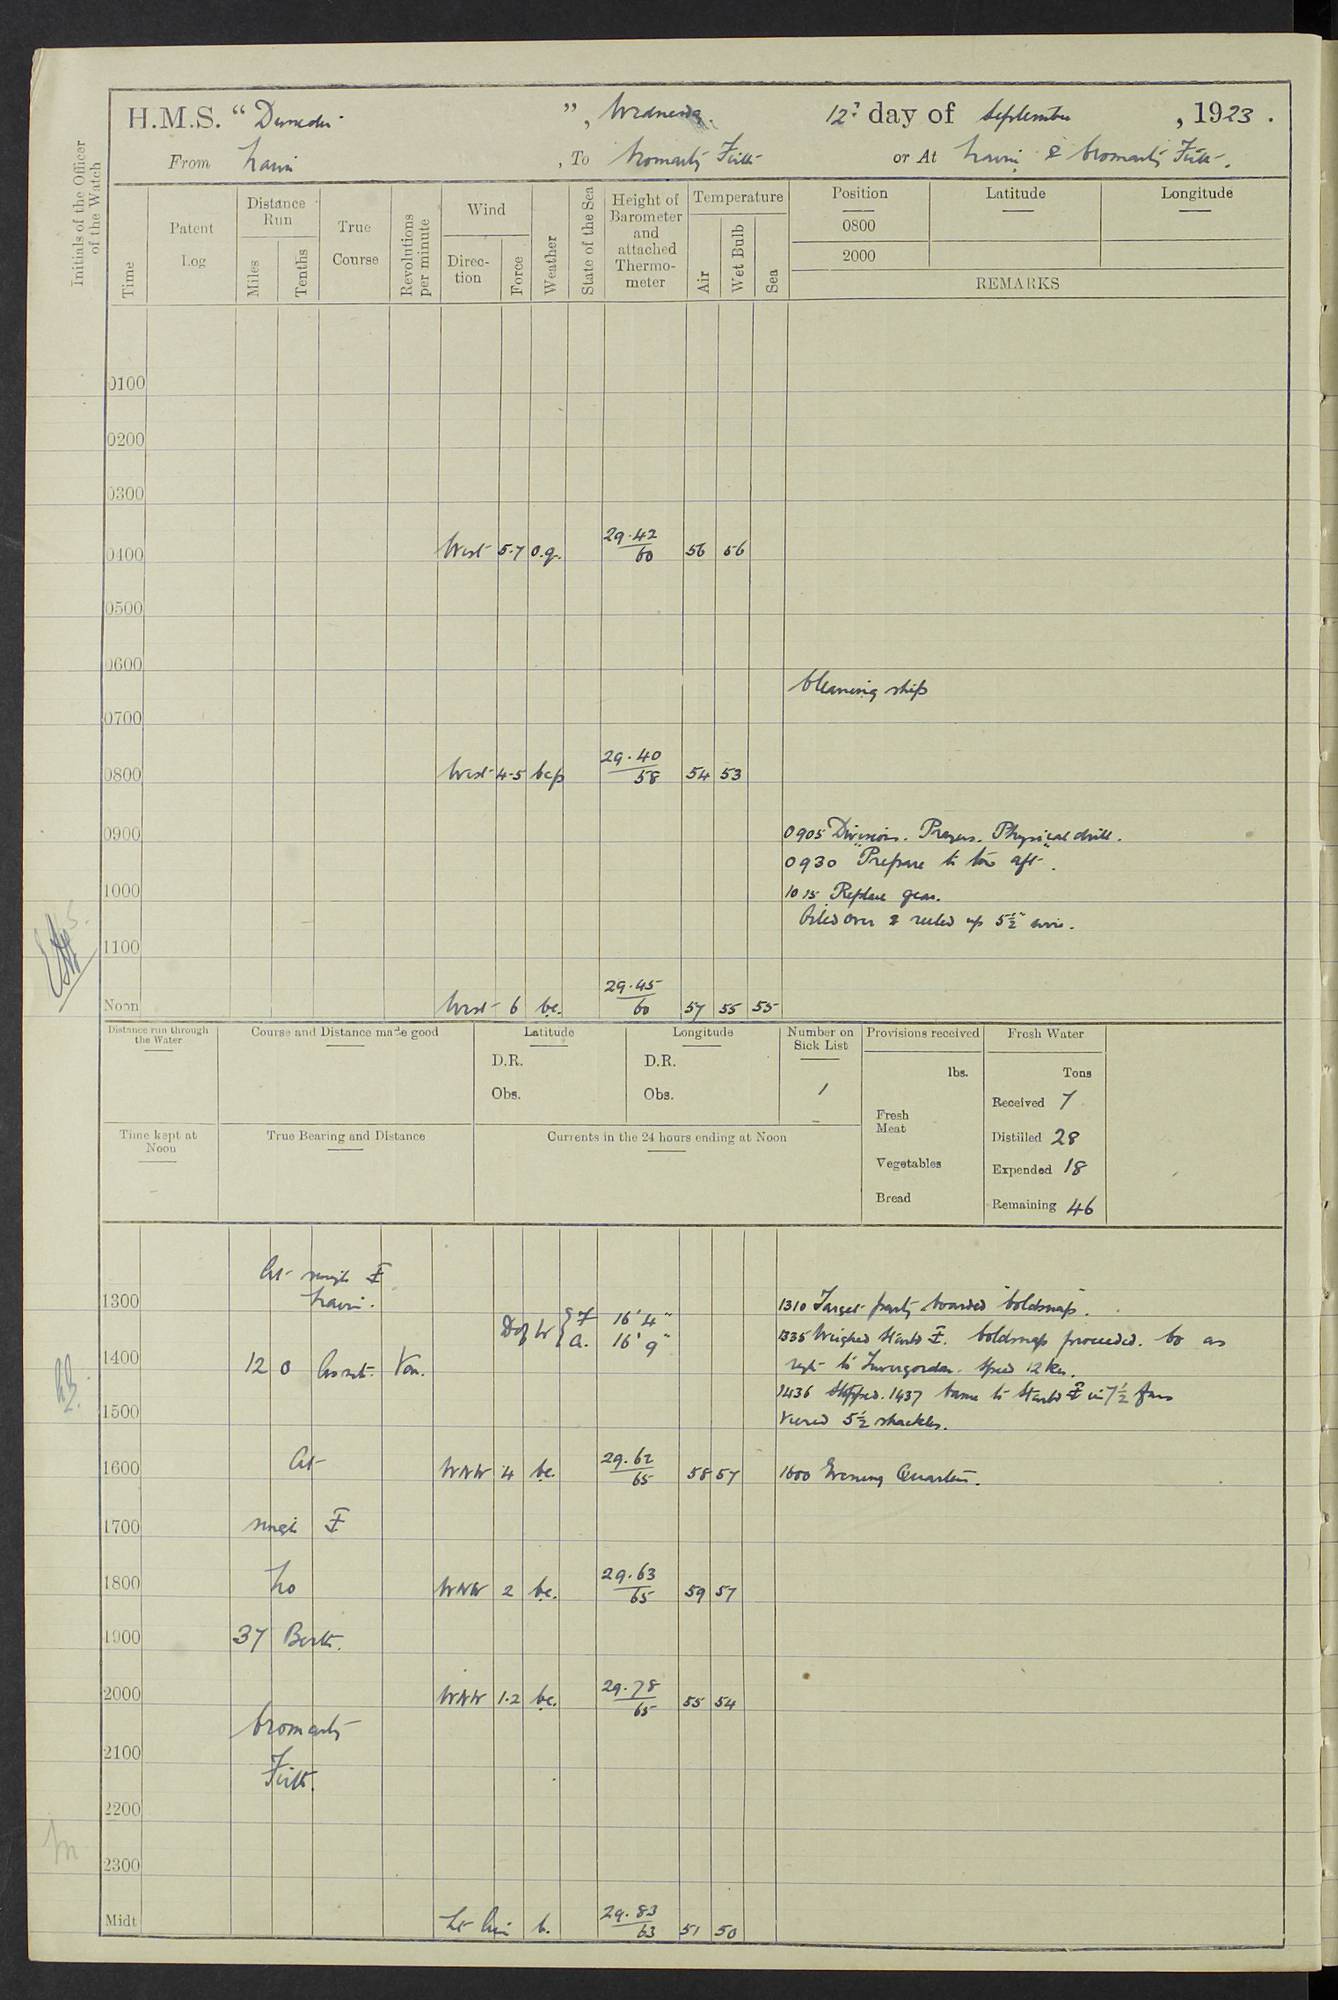 H.M.S. “Dunedin”, Wednesday 12th day of September, 1923.
From Nairn, To Cromarty Firth or At Nairn & Cromarty Firth.
Initials of the Officer of the Watch
Time
Patent Log
Distance Run
Miles
Tenths
True Course
Revolutions per minute
Wind
Direc-tion
Force
Weather
State of the Sea
Height of Barometer and attached Thermo-meter
Temperature
Air
Wet Bulb
Sea
Position Latitude Longitude
0800
2000
REMARKS
0100
0200
0300
0400 West 5-7 o.q. 29.42/60 56 56
0500
0600
Cleaning ship
0700
0800 West 4-5 bcp 29.40/58 54 53
0900 0905 Divisions. Prayers. Physical drill.
0930 "Prepare to tow aft".
1000 1015 Replace gear.
Oiled over & reeled up 5½" wire.
1100
Noon West 6 bc. 29.45/60 57 55 55
Distance run through the Water
Course and Distance made good
Latitude
D.R.
Obs.
Longitude
D.R.
Obs.
Number on Sick List
1
Provisions received
lbs.
Fresh Meat
Vegetables
Bread
Fresh Water
Tons
Received 7
Distilled 28
Expended 18
Remaining 46
Time kept at Noon
True Bearing and Distance
Currents in the 24 hours ending at Noon
At single
1300 Nairn. 1310 Target party boarded Coldsnap.
D of W { F 16' 4"
A. 16' 9"
1335 Weighed Starbd. Coldsnap proceeded. Co as
1400 12 0 As reqt. Var. reqt to Invergordon. Speed 12 kn.
1436 Stopped. 1437 Came to Starbd in 7½ fms
1500 Veered 5½ shackles.
1600 At WNW 4 bc. 29.62/65 58 57 1600 Evening Quarters.
1700 single
1800 No WNW 2 bc. 29.63/65 59 57
1900 37 Berth.
2000 WNW 1-2 bc. 29.78/65 55 54
Cromarty
2100 Firth.
2200
2300
Midt Lt Air b. 29.83/63 51 50